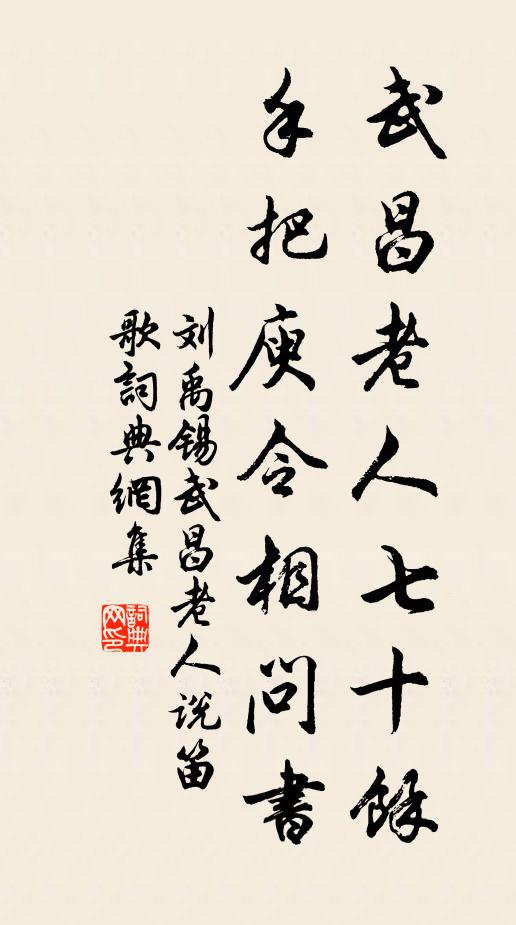 武昌老人七十餘
手把庾令相問書
刘禹锡武昌老人说笛
歌詞典網集
詞典
网印